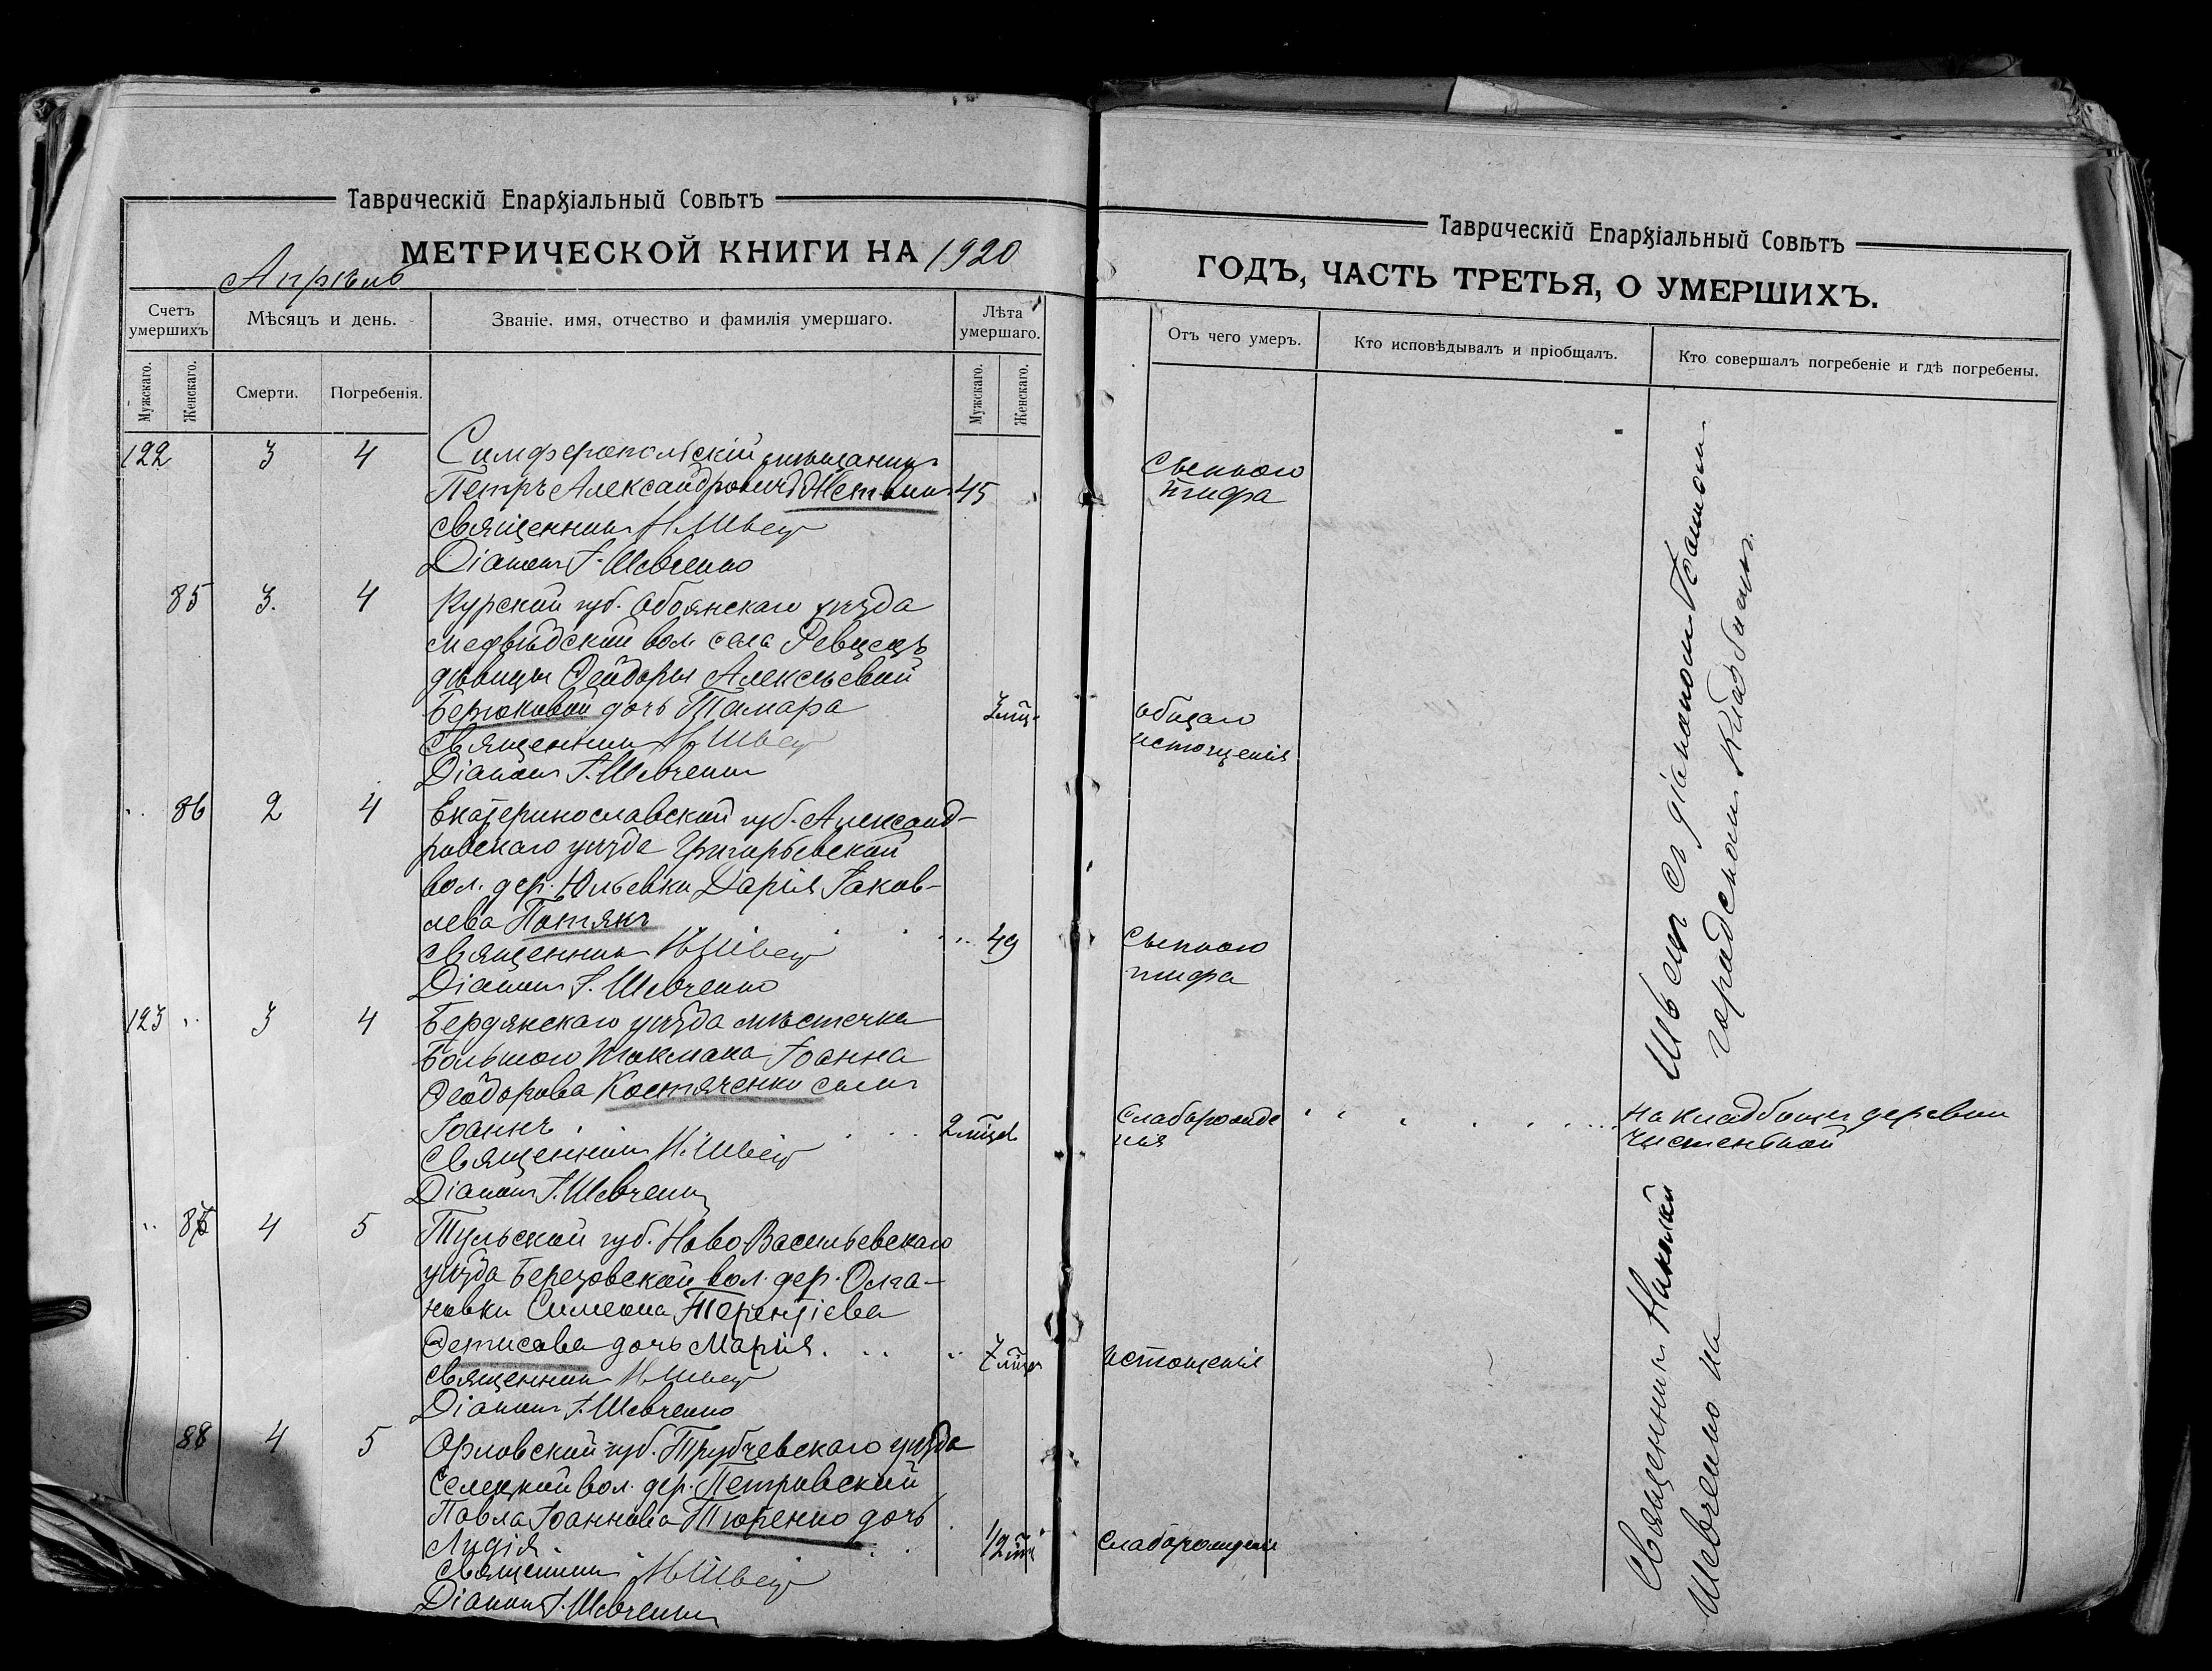 Таврическій Епархіальный Совѣтъ
МЕТРИЧЕСКОЙ КНИГИ НА 1920
Апрѣль
Счетъ умершихъ
Мѣсяцъ и день.
Званіе, имя, отчество и фамилія умершаго.
Лѣта умершаго.
Мужскаго.
Женскаго.
Смерти.
Погребенія.
Мужскаго.
Женскаго.
122 3 4 Симферопольскій мѣщанинъ
Петръ Александровичъ 45
Священникъ Н. Швецъ
Діаконъ Г. Шевченко
85 3. 4 Курской губ. Обоянскаго уѣзда
Медвѣдской вол. села Ревцецъ
дѣвицы Ѳеодоры Алексѣевой
Берюковой дочь Тамара мѣс.
Священникъ Н. Швецъ
Діаконъ Г. Шевченко
86 2 4 Екатеринославской губ. Александ-
ровскаго уѣзда Григорьевской
вол. дер. Юльевки Дарія Іаков-
лева Потякъ 49
Священникъ Н. Швецъ
Діаконъ Г. Шевченко
123 " 3 4 Бердянскаго уѣзда мѣстечка
Большого Токмака Іоанна
Ѳеодорова Костяченки сынъ
Іоаннъ 2 мѣсц.
Священникъ Н. Швецъ
Діаконъ Г. Шевченко
" 87 4 5 Тульской губ. Ново-Васильевскаго
уѣзда Березовской вол. дер. Олга-
новки Симеона Терентіева
дочь Марія 7 мѣсц.
Священникъ Н. Швецъ
Діаконъ Г. Шевченко
88 4 5 Орловской губ. Трубчевскаго уѣзда
Селецкой вол. дер. Петровской
Павла Іоаннова Тюренко дочь
Лидія 1/2 мѣс.
Священникъ Н. Швецъ
Діаконъ Г. Шевченко
Таврическій Епархіальный Совѣтъ
ГОДЪ, ЧАСТЬ ТРЕТЬЯ, О УМЕРШИХЪ.
Отъ чего умеръ.
Кто исповѣдывалъ и пріобщалъ.
Кто совершалъ погребеніе и гдѣ погребены.
Сыпного
тифа
общаго
истощенія
Сыпного
тифа
Слаборожде
нія
на кладбищѣ деревни
Чистенькой
истощенія
Слаборожденія
Священникъ Николай Швецъ съ діакономъ Іоанномъ
Шевченко на городскомъ кладбищѣ.